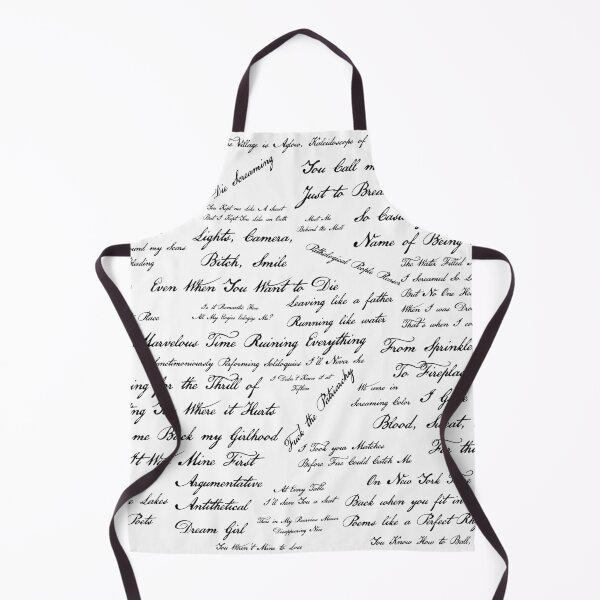 The Village is Aglow, Kaleidoscope of
Die Screaming
You Call m
Just to Brea
You Kept me Like A Secret
But I Kept You Like an Oath
Meet Me
Behind the Mall
So Casu
Lights, Camera,
Bitch, Smile
Name of Being
Pathological People Pleaser
ound my Scars
Bleeding
The Water Filled
I Screamed So L
But No One He
When I was Dro
That's when I
Even When You Want to Die
Is it Romantic How
All My Elegies Eulogize Me?
Leaving like a father
Running like water
Race
Marvelous Time Ruining Everything
From Sprinkle
To Firepla
Sanctimoniously Performing Soliloquies I'll Never See
ing for the Thrill of
I Didn't Know if at
We were in
Screaming Color
I G
Fuck the Patriarchy
ing You Where it Hurts
Blood, Sweat,
me Back my Girlhood
t Was Mine First
I Took your Matches
Before Fire Could Catch Me
For th
Argumentative
Antithetical
Dream Girl
At Every Table
I'll Save You a Seat
On New York Ti
e Lakes
Poets
Back when you fit in
Poems like a Perfect Rh
Time, in My
Disappearing Now
You Weren't Mine to Lose
You Know How to Ball,